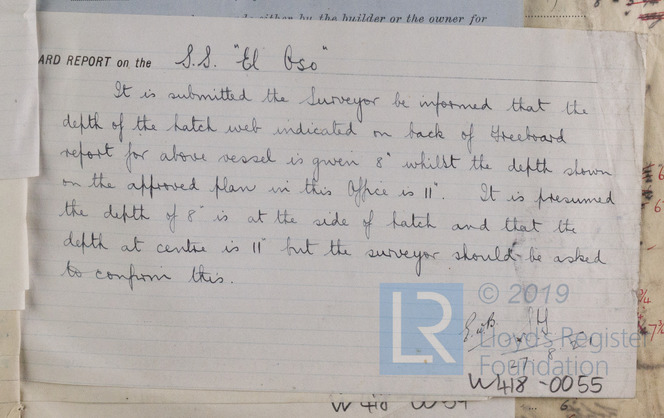 either by the builder or the owner for
ARD REPORT on the S.S. "El Oso"
It is submitted the Surveyor be informed that the
depth of the hatch web indicated on back of Freeboard
report for above vessel is given 8" whilst the depth shown
on the approved plan in this Office is 11". It is presumed
the depth of 8" is at the side of hatch and that the
depth at centre is 11" but the surveyor should be asked
to confirm this.
LR
© 2019
Lloyd's Register
Foundation
W418-0055